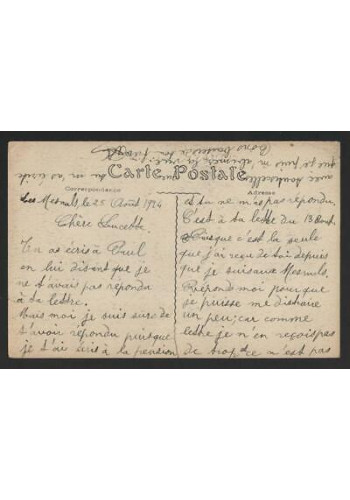 Carte Postale
Correspondance
Adresse
Les Mesnuls, le 25 Août 1924
Chère Lucette.
Tu as écris à Paul
en lui disant que je
ne t'avais pas répondu
à ta lettre.
Mais moi je suis sure de
t'avoir répondu puisque
je t'ai écris à la pension
et tu ne m'as pas répondu.
C'est à ta lettre du 13 Août.
Puisque c'est la seule
que j'ai reçue de toi depuis
que je suis aux Mesnuls.
Réponds moi pour que
je puisse me distraire
un peu; car comme
lettre je n'en reçois pas
de trop et ce n'est pas
avec
que je puis m'
Bons baisers